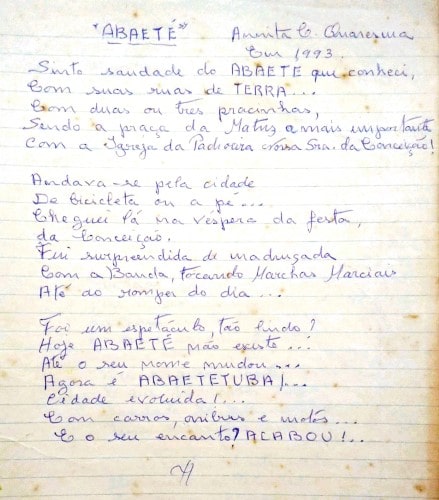 "ABAETÉ" Annita C. Quaresma
Em 1993.
Sinto saudade do ABAETÉ que conheci,
Com suas ruas de TERRA...
Com duas ou três pracinhas,
Sendo a praça da Matriz a mais importante
Com a Igreja da Padroeira Nossa Sra. da Conceição!
Andava-se pela cidade
De bicicleta ou a pé...
Cheguei lá na véspera da festa,
da Conceição.
Fui surpreendida de madrugada
Com a Banda, tocando Marchas Marciais
Até ao romper do dia...
Foi um espetáculo, tão lindo?
Hoje ABAETÉ não existe...
Até o seu nome mudou...
Agora é ABAETETUBA!...
Cidade evoluida!...
Com carros, onibus e motos...
E o seu encanto? ACABOU!..